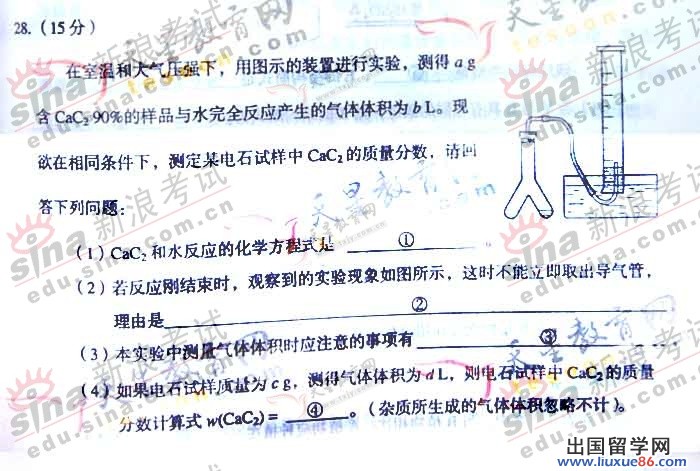 28.（15 分）
在室温和大气压强下，用图示的装置进行实验，测得 a g
含 CaC₂ 90%的样品与水完全反应产生的气体体积为 b L。现
欲在相同条件下，测定某电石试样中 CaC₂ 的质量分数，请回
答下列问题：
（1）CaC₂ 和水反应的化学方程式是 ① 。
（2）若反应刚结束时，观察到的实验现象如图所示，这时不能立即取出导气管，
理由是 ②
（3）本实验中测量气体体积时应注意的事项有 ③
（4）如果电石试样质量为 c g，测得气体体积为 d L，则电石试样中 CaC₂ 的质量
分数计算式 w(CaC₂) = ④ 。（杂质所生成的气体体积忽略不计）。
sina 新浪考试
edu.sina.com.cn
天星教育网
tesoon.com
出国留学网
www.liuxue86.com